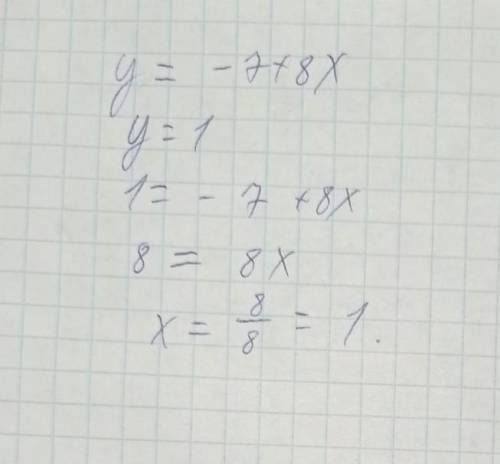 y = -7+8x
y = 1
1 = -7 +8x
8 = 8x
x = 8/8 = 1.